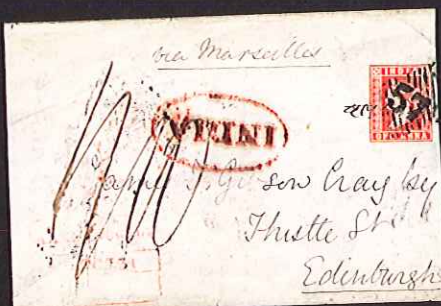 via Marseilles
INDIA
57
INDIA
James T. Gibson Craig Esq
Thistle St
Edinburgh